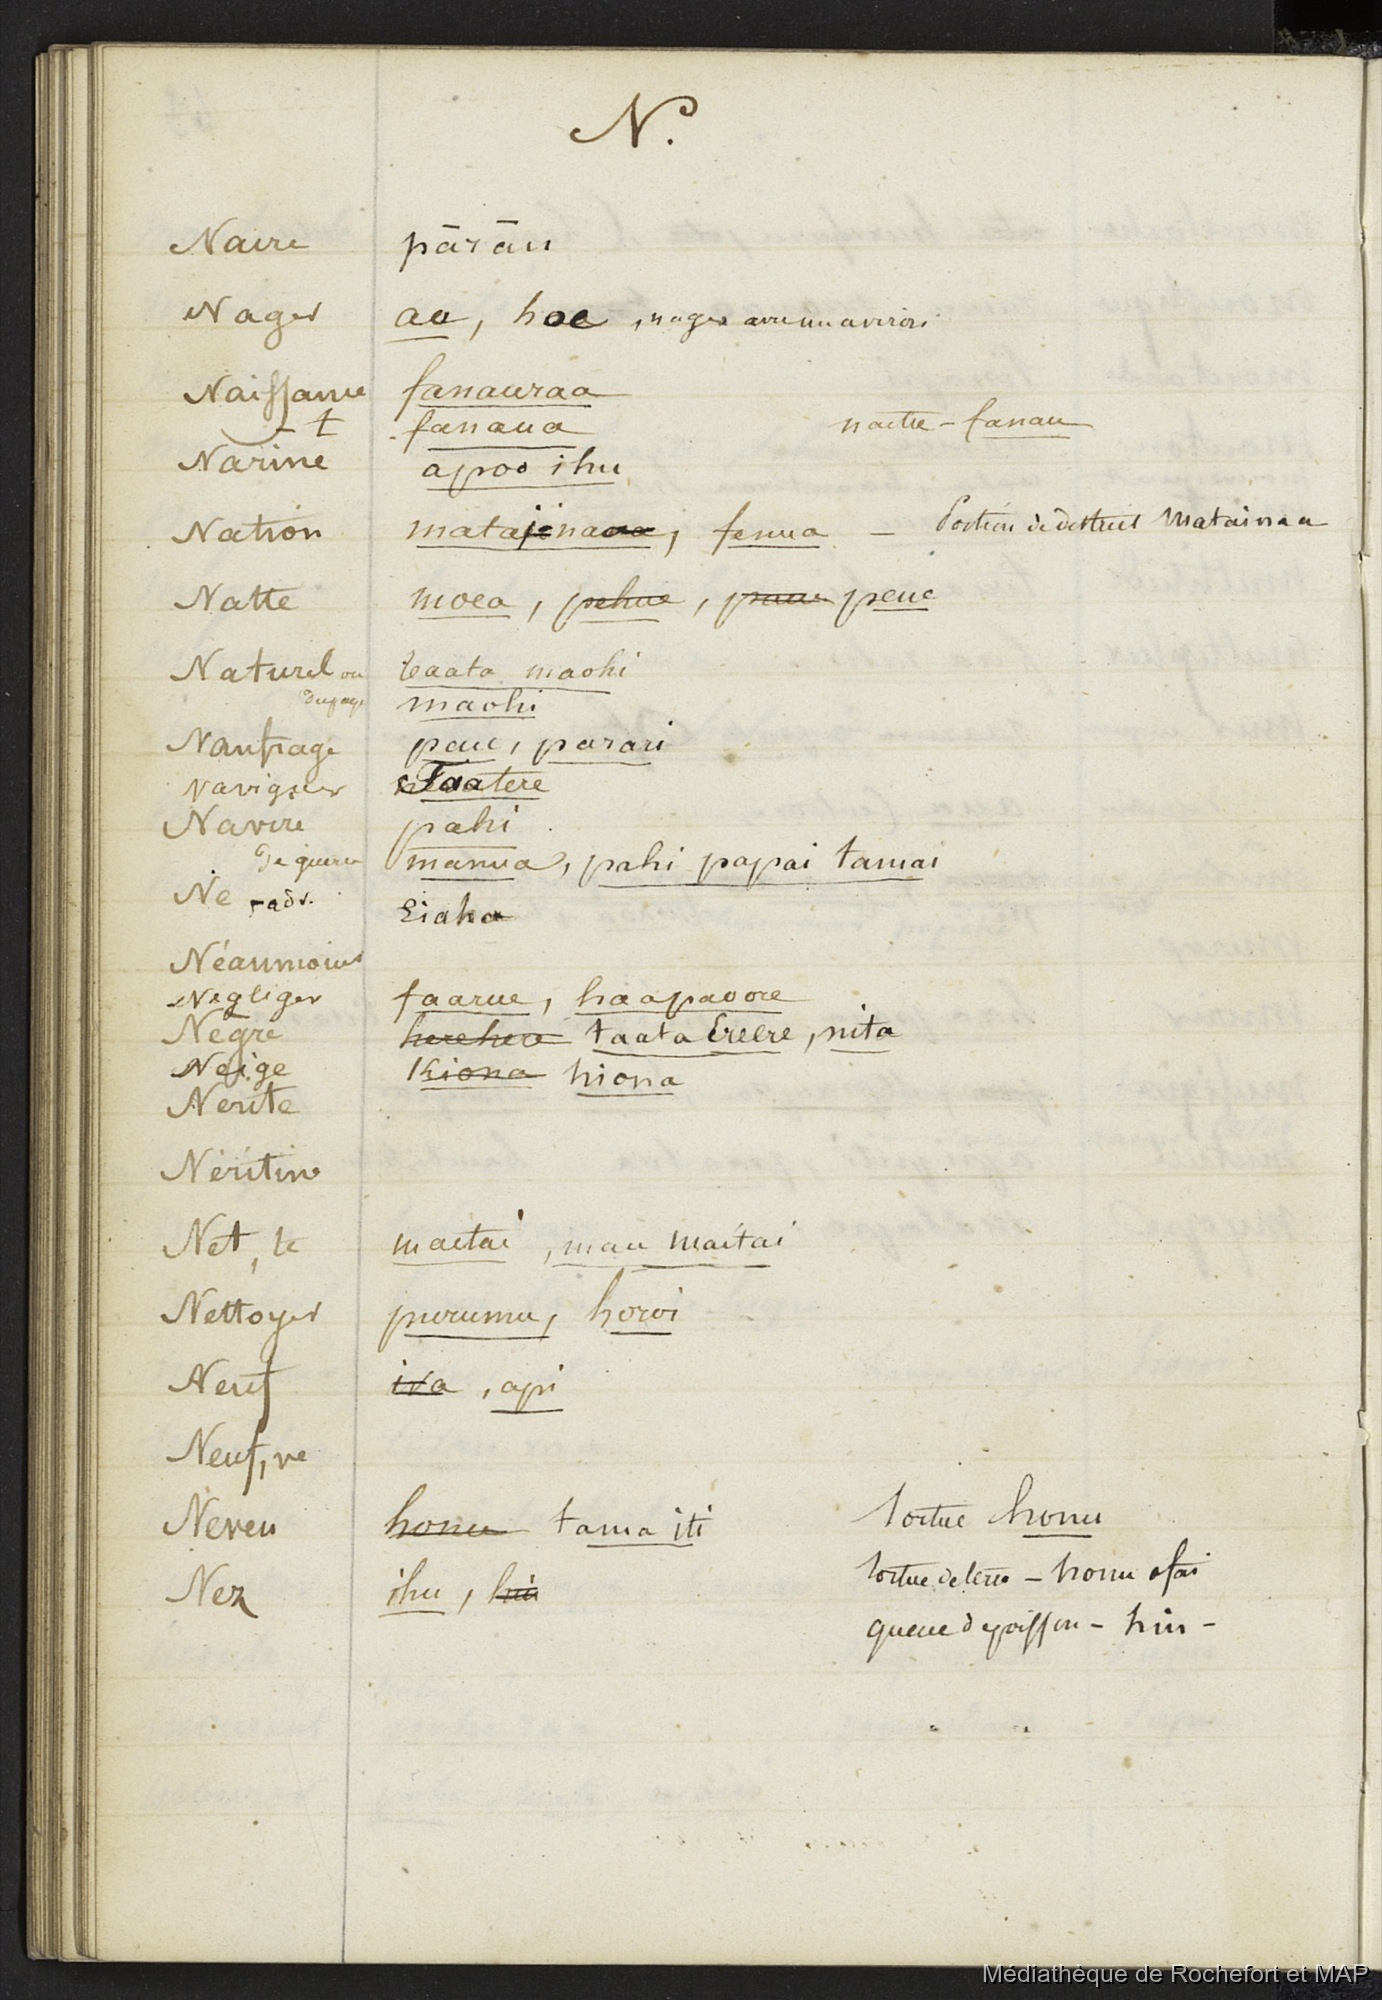 N.
Nacre pārāu
Nager au, hoe, nager avec un aviron
Naissance fanauraa
fanaua naitre - fanau
Narine apoo ihu
Nation matajenaaa, fenua - Portion de district Matainaa
Natte moea, pehue, paua peue
Naturel ou taata maohi
du pays maohi
Naufrage paue, parari
Naviguer Faatere
Navire pahi
de guerre manua, pahi papai tamai
Ne adv. Eiaha
Néanmoins
Negliger faarue, haapaoore
Negre herehere taata Ereere, nita
Neige Kiona hiona
Nerite
Néritine
Net, te maitai, mau maitai
Nettoyer purumu, horoi
Neuf iva, api
Neuf, ve
Neveu honu tama iti Tortue honu
Nez ihu, hiu Tortue de terre - honu ofai
queue de poisson - hiu -
Médiathèque de Rochefort et MAP